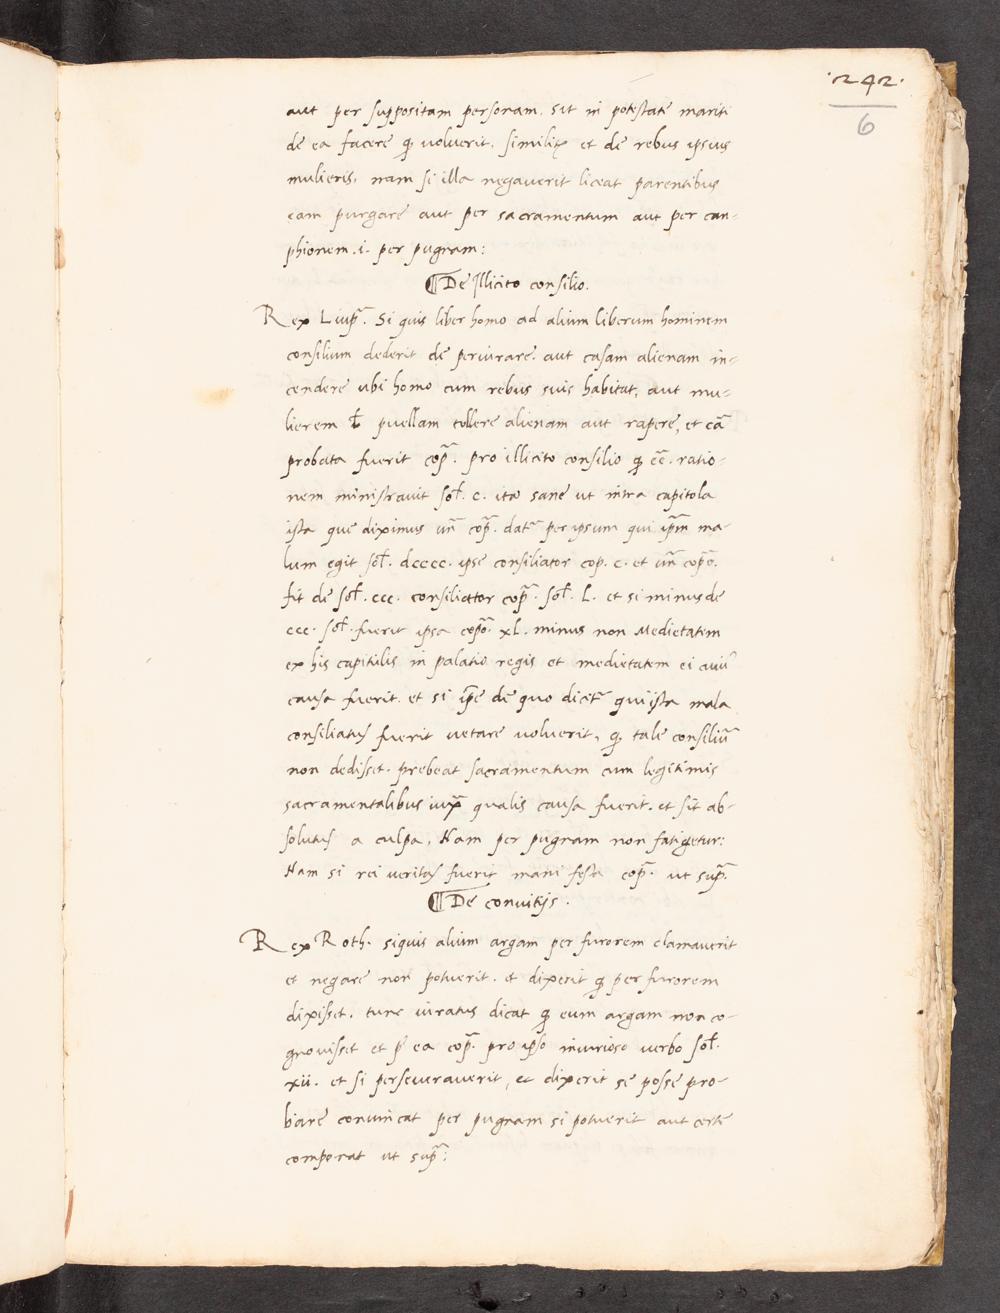 ·242·
6
aut per suppositam personam. sit in potestate mariti
de ea facere q̃ voluerit. similiꝶ et de rebus ipsius
mulieris. nam si illa negaverit liceat parentibus
eam purgare aut per sacramentum aut per can-
phionem .i. per pugnam:
¶ De Illicito consilio.
Rex Liuꝑ̃. Si quis liber homo ad alium liberum hominem
consilium dederit de periurare. aut casam alienam in-
cendere ubi homo cum rebus suis habitat, aut mu-
lierem ł puellam tollere alienam aut rapere, et cã
probata fuerit cop̃. pro illicito consilio q̃ eẽ. ratio-
nem ministrauit sol̃. c. ita sane ut intra capitola
ista que diximus un̄ cop̃. dat̃ per ipsum qui ip̃m ma-
lum egit sol̃. dcccc. ipse consiliator cop. c. et un̄ copõ.
fit de sol̃. ccc. consiliator cop̃. sol̃. L. et si minus de
ccc. sol̃. fuerit ipsa copõ. xL. minus non Medietatem
ex his capitilis in palatio regis et medietatem ei cuiũ
causa fuerit. et si ip̃e de quo dicit̃ qui ista mala
consiliatus fuerit vetare voluerit, q̃ tale consiliũ
non dedisset. prebeat sacramentum cum legitimis
sacramentalibus iuxã qualis causa fuerit. et sit ab-
solutus a culpa. Nam per pugnam non fatigetur:
Nam si rei veritas fuerit mani festa cop̃. ut sup̃.
¶ De convitijs.
Rex Roth. siquis alium argam per furorem clamauerit
et negare non potuerit. et dixerit q̃ per furorem
dixisset. tunc iuratus dicat q̃ eum argam non co-
gnouisset et p̃ ea cop̃. pro ipso iniurioso verbo sol̃.
xii. et si perseverauerit, et dixerit se posse pro-
bare convincat per pugnam si potuerit aut certe
componat ut sup̃: